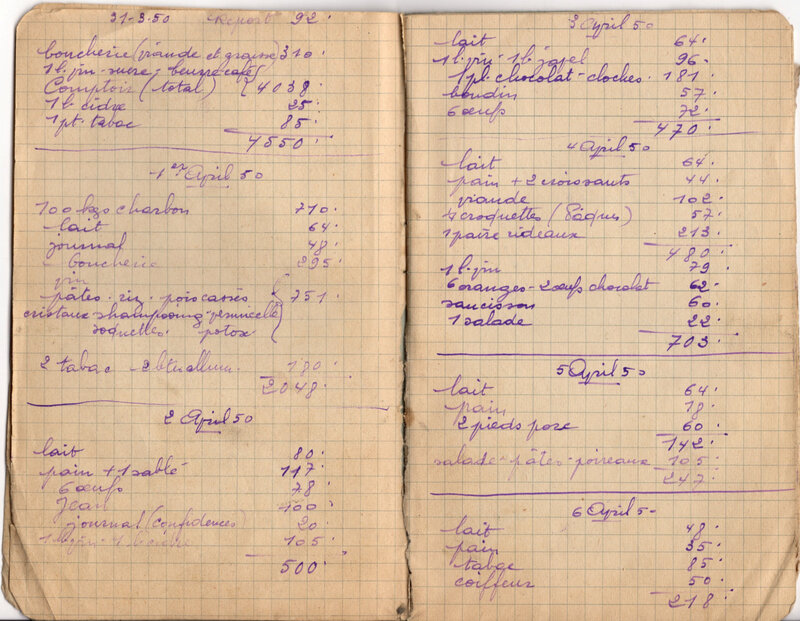 31-3.50 Report 92.
boucherie (viande et graisse) 310.
1 l. vin - sucre - beurre café
Comptoir (total) 4038.
1 l. cidre 25.
1 pt. tabac 85.
4550.
1er April 50
100 kgs charbon 710.
lait 64.
journal 48.
boucherie 295.
vin
pâtes. riz. pois cassés 751.
cristaux shampooing vermicelle
roquettes. potox
2 tabac - 2 bts allum. 180.
2048.
2 April 50
lait 80.
pain + 1 sablé 117.
6 œufs 78.
Jean 100.
journal (confidences) 20.
1 l. vin - 1 l. cidre 105.
500.
3 April 50
lait 64.
1 l. vin - 1 l. javel 96.
1 pt. chocolat - cloches. 181.
boudin 57.
6 œufs 72.
470.
4 April 50
lait 64.
pain + 2 croissants 44.
viande 102.
4 croquettes (Pâques) 57.
1 paire rideaux 213.
480.
1 l. vin 79.
6 oranges - 2 œufs chocolat 62.
saucisson 60.
1 salade 22.
703.
5 April 50
lait 64.
pain 18.
2 pieds porc 60.
142.
salade - pâtes - poireaux 105.
247.
6 April 50
lait 48.
pain 35.
tabac 85.
coiffeur 50.
218.